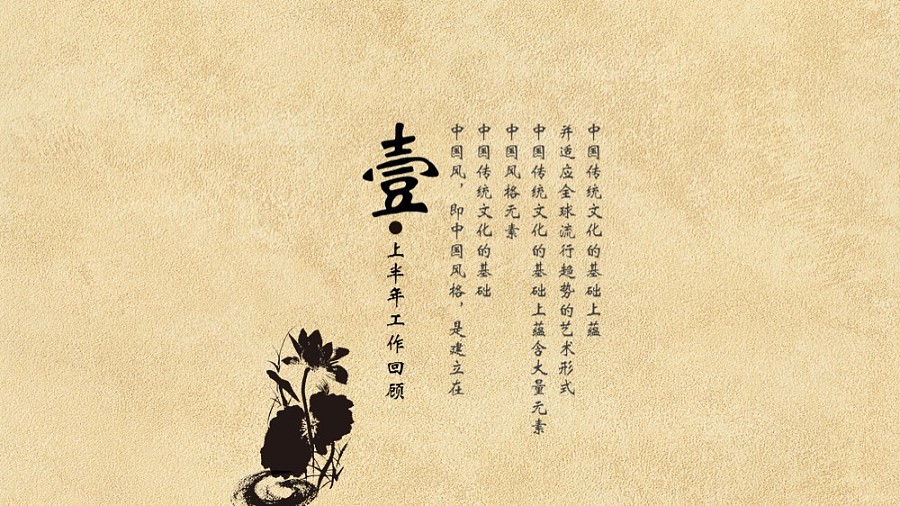 壹
上半年工作回顾
中国风，即中国风格，是建立在
中国传统文化的基础
中国风格元素
中国传统文化的基础上蕴含大量元素
并适应全球流行趋势的艺术形式
中国传统文化的基础上蕴